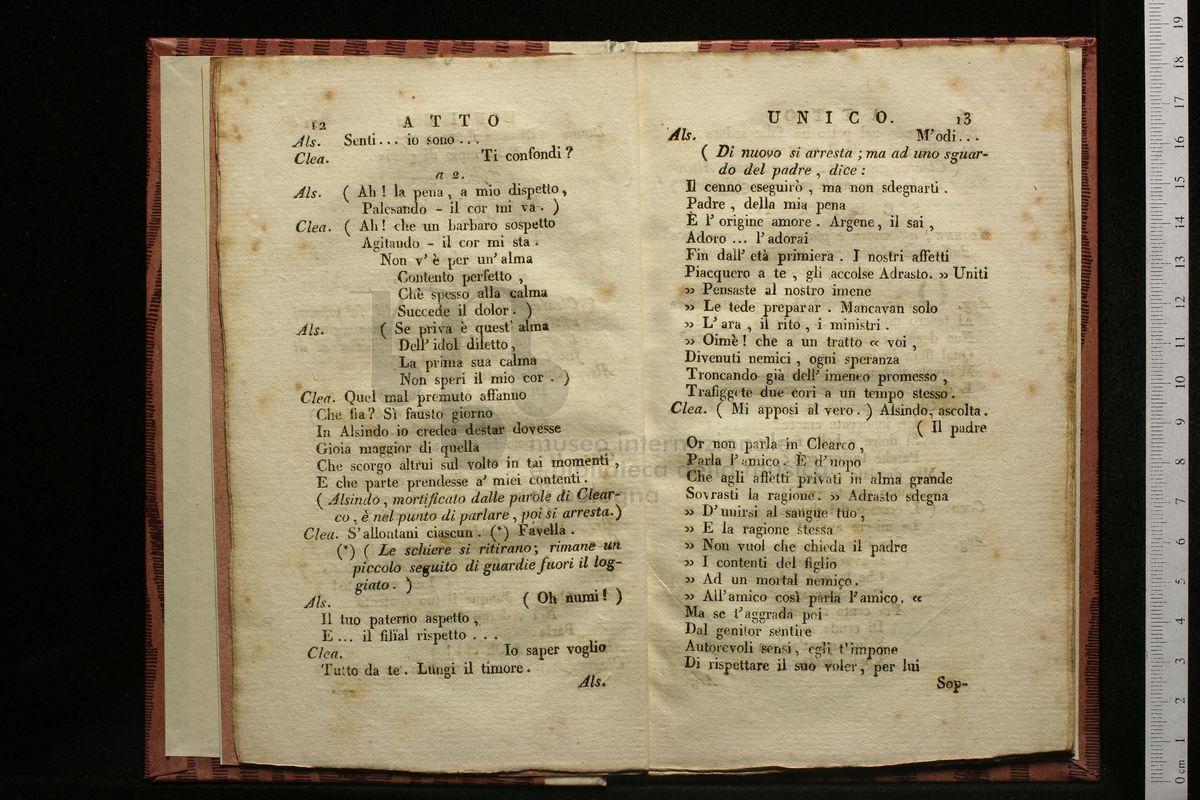 12 ATTO
Als. Senti... io sono ...
Clea. Ti confondi?
a 2.
Als. ( Ah! la pena, a mio dispetto,
Palesando - il cor mi va. )
Clea. ( Ah! che un barbaro sospetto
Agitando - il cor mi sta.
Non v' è per un' alma
Contento perfetto,
Chè spesso alla calma
Succede il dolor. )
Als. ( Se priva è quest' alma
Dell' idol diletto,
La prima sua calma
Non speri il mio cor. )
Clea. Quel mal premuto affanno
Che fia? Sì fausto giorno
In Alsindo io credea destar dovesse
Gioia maggior di quella
Che scorgo altrui sul volto in tai momenti,
E che parte prendesse a' miei contenti.
( Alsindo, mortificato dalle parole di Clear-
co, è nel punto di parlare, poi si arresta.)
Clea. S'allontani ciascun. (*) Favella.
(*) ( Le schiere si ritirano; rimane un
piccolo seguito di guardie fuori il log-
giato. )
Als. ( Oh numi! )
Il tuo paterno aspetto,
E ... il filial rispetto ...
Clea. Io saper voglio
Tutto da te. Lungi il timore.
Als.
UNICO. 13
Als. M'odi...
( Di nuovo si arresta; ma ad uno sguar-
do del padre, dice:
Il cenno eseguirò, ma non sdegnarti.
Padre, della mia pena
È l' origine amore. Argene, il sai,
Adoro ... l'adorai
Fin dall' età primiera. I nostri affetti
Piacquero a te, gli accolse Adrasto. » Uniti
» Pensaste al nostro imene
» Le tede preparar. Mancavan solo
» L' ara, il rito, i ministri.
» Oimè! che a un tratto « voi,
Divenuti nemici, ogni speranza
Troncando già dell' imeneo promesso,
Trafiggete due cori a un tempo stesso.
Clea. ( Mi apposi al vero. ) Alsindo, ascolta.
( Il padre
Or non parla in Clearco,
Parla l'amico. È d'uopo
Che agli affetti privati in alma grande
Sovrasti la ragione. » Adrasto sdegna
» D'unirsi al sangue tuo,
» E la ragione stessa
» Non vuol che chieda il padre
» I contenti del figlio
» Ad un mortal nemico.
» All'amico così parla l'amico. «
Ma se t'aggrada poi
Dal genitor sentire
Autorevoli sensi, egli t'impone
Di rispettare il suo voler, per lui
Sop-
museo internazionale
e biblioteca della musica
19
18
17
16
15
14
13
12
11
10
9
8
7
6
5
4
3
2
1
0 cm